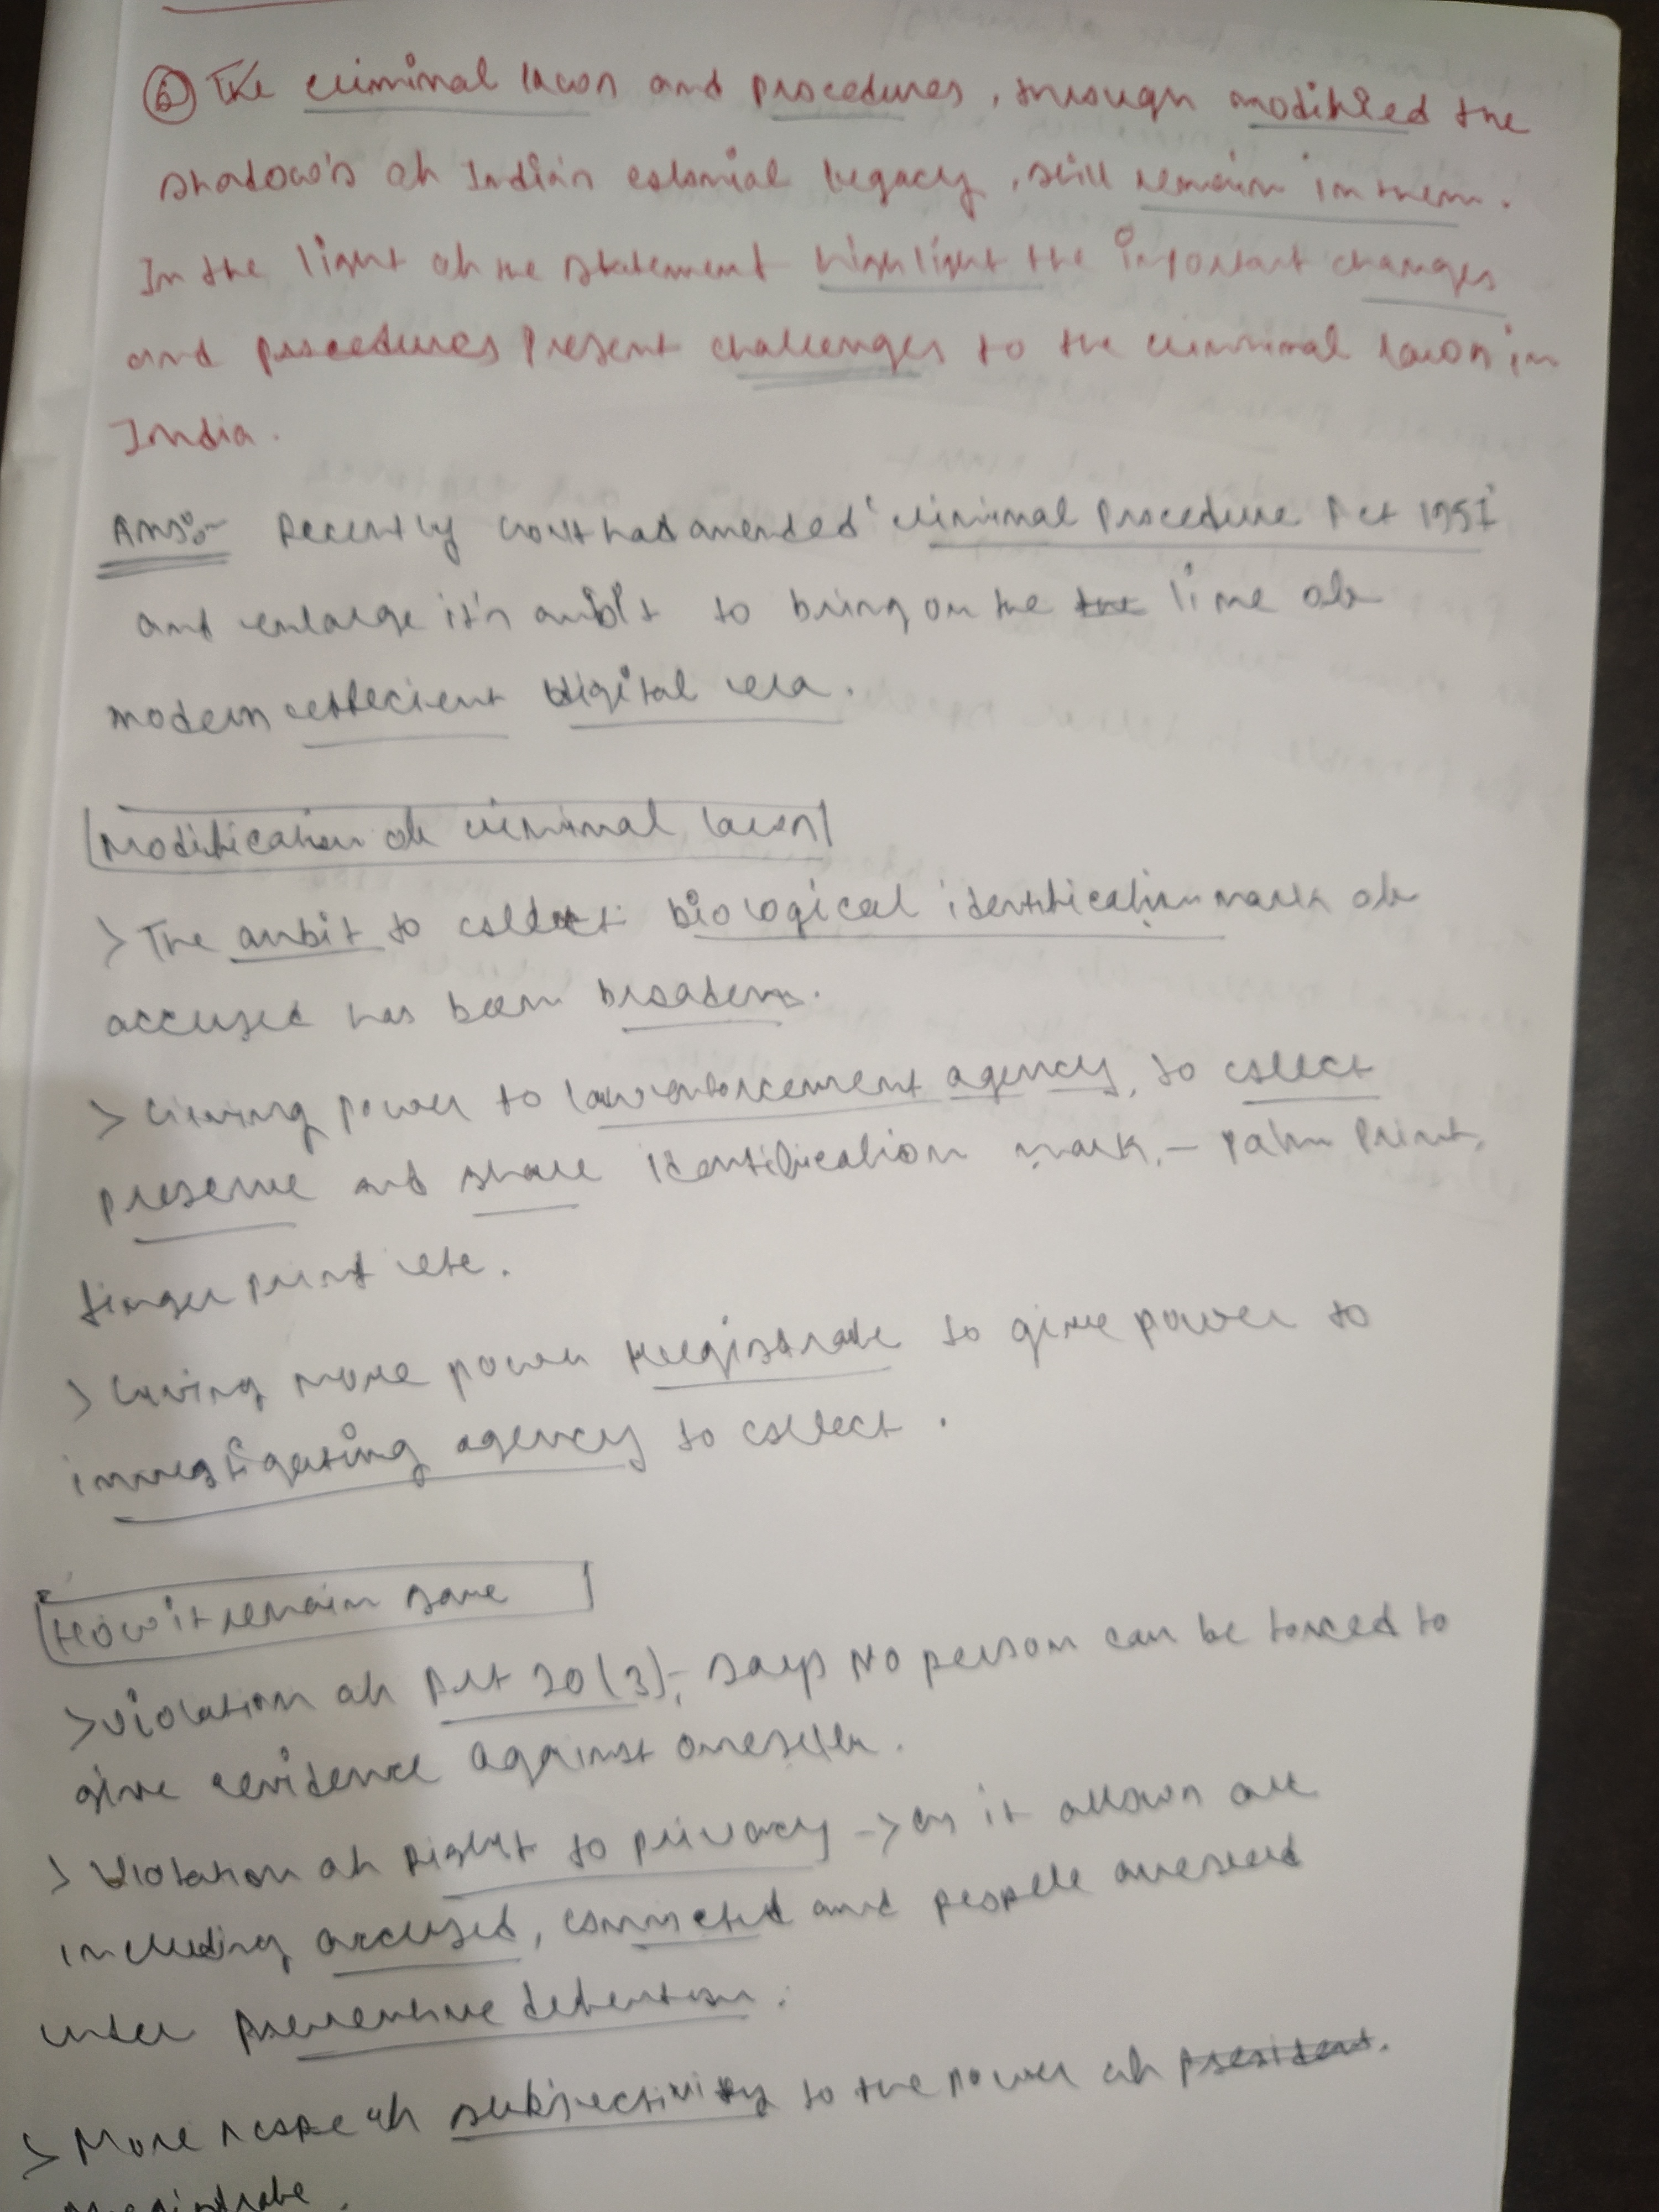 ⑥ The criminal laws and procedures, through modified the
shadow's of India's colonial legacy, still remain in them.
In the light of the statement highlight the important changes
and procedures present challenges to the criminal laws in
India.
Ans:- Recently Govt had amended 'Criminal Procedure Act 1951
and enlarge it's ambit to bring on the line of
modern effecient digital era.
Modification of criminal laws
> The ambit to collect biological identification mark of
accused has been broaden.
> Giving power to law enforcement agency, to collect
preserve and share identification mark, - palm print,
finger print etc.
> Giving more power Magistrate to give power to
investigating agency to collect.
How it remain same
> Violation of Art 20(3), says No person can be forced to
give evidence against oneself.
> Violation of Right to privacy -> as it allows all
including accused, convicted and people arrested
under preventive detention.
> More scope of subjectivity to the power of president.
Magistrate.